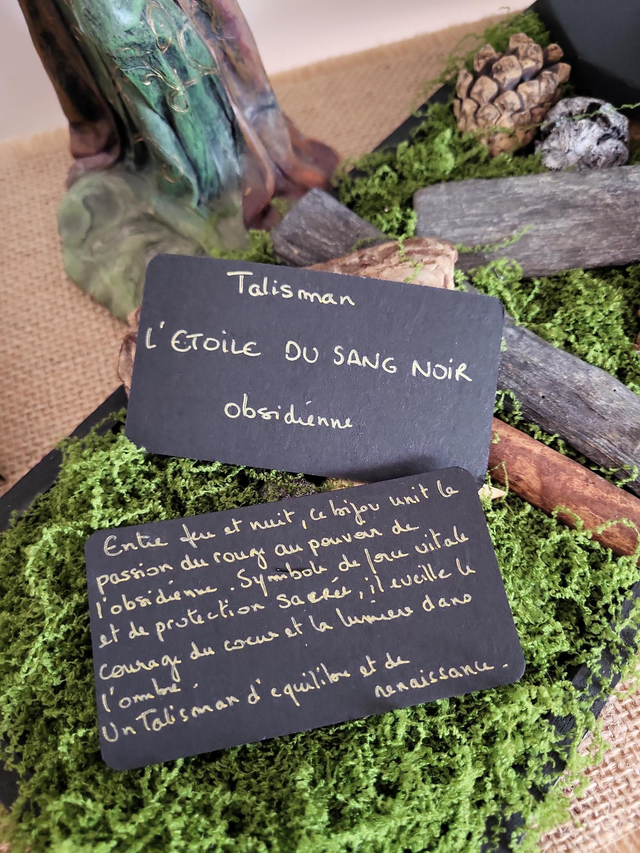 Talisman
L'ETOILE DU SANG NOIR
obsidienne
Entre feu et nuit, ce bijou unit la
passion du rouge au pouvoir de
l'obsidienne. Symbole de force vitale
et de protection sacrée, il eveille le
courage du coeur et la lumiere dans
l'ombre.
Un Talisman d'equilibre et de
renaissance.